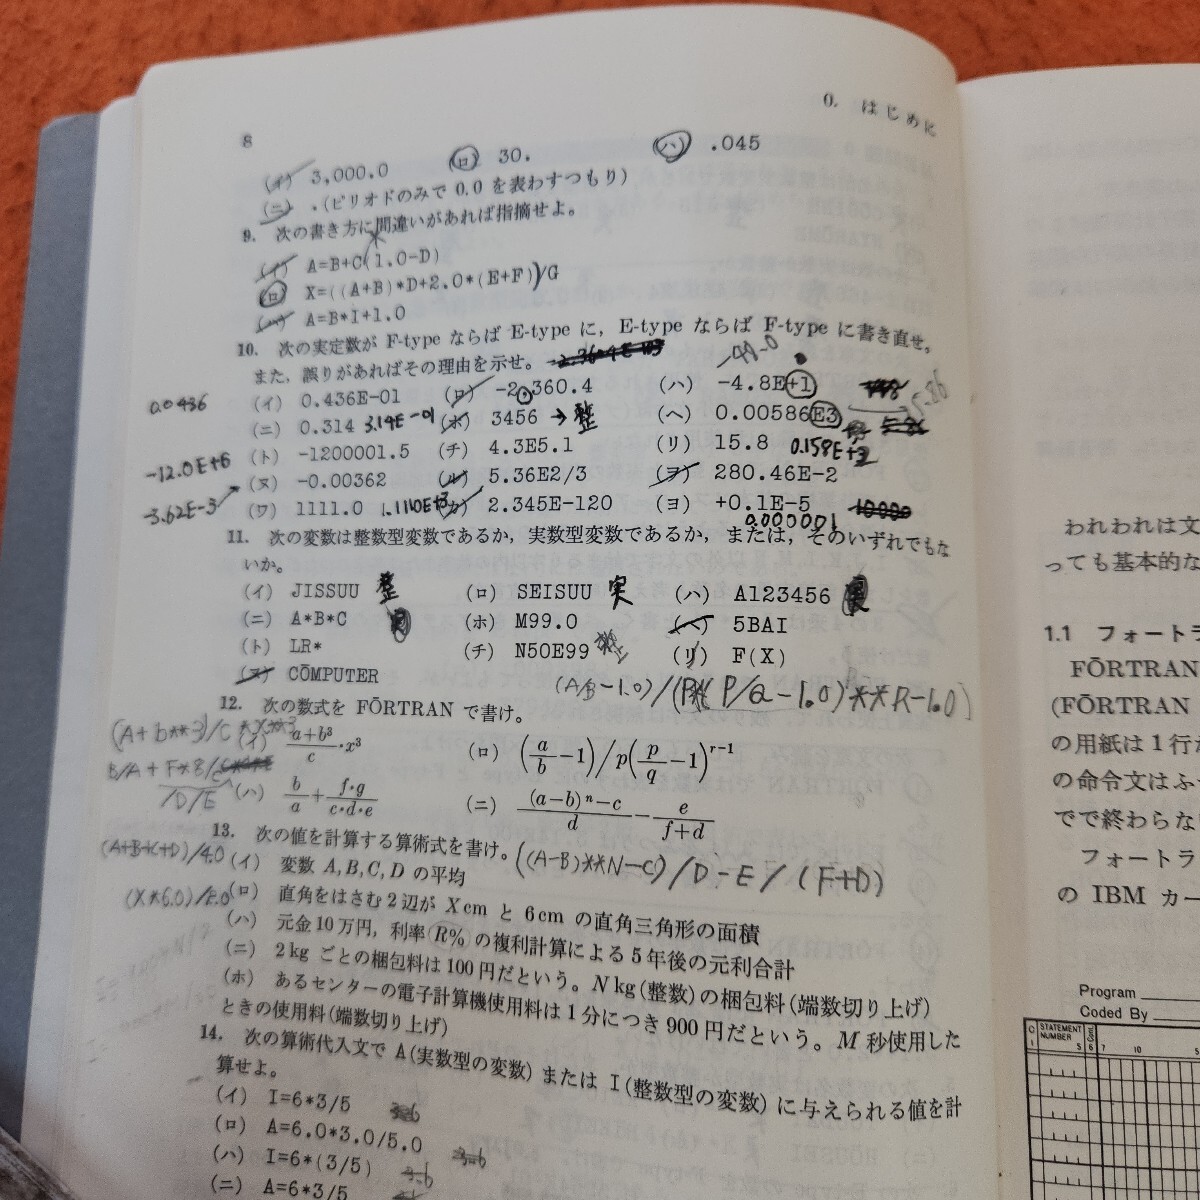 0. はじめに
8
(イ) 3,000.0 (ロ) 30. (ハ) .045
(ニ) .(ピリオドのみで 0.0 を表わすつもり)
9. 次の書き方に間違いがあれば指摘せよ。
(イ) A=B+C(1.0-D)
(ロ) X=((A+B)*D+2.0*(E+F))/G
(ハ) A=B*I+1.0
10. 次の実定数が F-type ならば E-type に, E-type ならば F-type に書き直せ。
また, 誤りがあればその理由を示せ。
-48.0
0.0436 (イ) 0.436E-01 (ロ) -2,360.4 (ハ) -4.8E+1
(ニ) 0.314 3.14E-01 (ホ) 3456 → 整 (ヘ) 0.00586E3 5.86
-12.0E+6 (ト) -1200001.5 (チ) 4.3E5.1 (リ) 15.8 0.158E+2
-3.62E-3 (ヌ) -0.00362 (ル) 5.36E2/3 (ヲ) 280.46E-2
(ワ) 1111.0 1.1110E+3 (カ) 2.345E-120 (ヨ) +0.1E-5
0.000001
11. 次の変数は整数型変数であるか, 実数型変数であるか, または, そのいずれでもな
いか。
(イ) JISSUU 整 (ロ) SEISUU 実 (ハ) A123456
(ニ) A*B*C (ホ) M99.0 (ヘ) 5BAI
(ト) LR* (チ) N50E99 整 (リ) F(X)
(ヌ) CŌMPUTER
(A/B-1.0)/(P*(P/Q-1.0)**R-1.0)
12. 次の数式を FŌRTRAN で書け。
(A+b**3)/C*X**3 (イ) a+b³/c・x³ (ロ) (a/b-1)/p(p/q-1)^r-1
B/A+F*B/C
/D/E (ハ) b/a+f・g/c・d・e (ニ) (a-b)ⁿ-c/d-e/f+d
13. 次の値を計算する算術式を書け。 ((A-B)**N-C)/D-E/(F+D)
(A+B+C+D)/4.0 (イ) 変数 A,B,C,D の平均
(X*6.0)/2.0 (ロ) 直角をはさむ2辺が Xcm と 6cm の直角三角形の面積
(ハ) 元金10万円, 利率 R% の複利計算による5年後の元利合計
(ニ) 2kg ごとの梱包料は100円だという。Nkg(整数)の梱包料(端数切り上げ)
(ホ) あるセンターの電子計算機使用料は1分につき900円だという。M秒使用した
ときの使用料(端数切り上げ)
14. 次の算術代入文で A(実数型の変数) または I(整数型の変数) に与えられる値を計
算せよ。
(イ) I=6*3/5
(ロ) A=6.0*3.0/5.0 3.6
(ハ) I=6*(3/5)
(ニ) A=6*3/5
われわれは文
っても基本的な
1.1 フォートラ
FŌRTRAN
(FŌRTRAN
の用紙は1行が
の命令文はふ
でで終わらな
フォートラ
の IBM カー
Program
Coded By
STATEMENT
NUMBER
Cont.
5 6 7 10